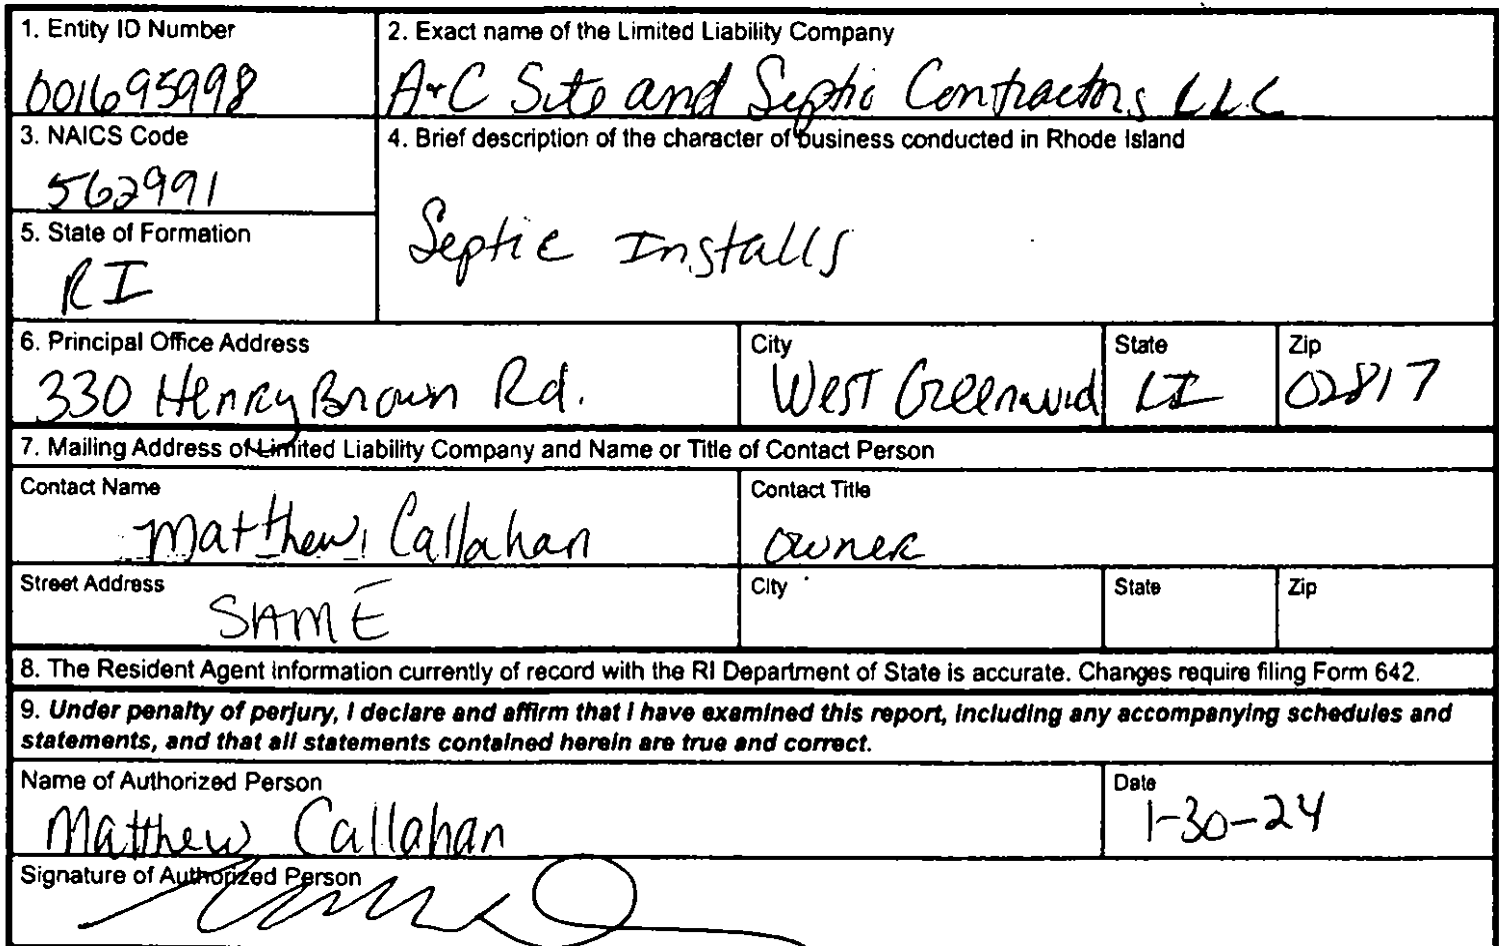 1. Entity ID Number
001695998
2. Exact name of the Limited Liability Company
A+C Site and Septic Contractors LLC
3. NAICS Code
562991
4. Brief description of the character of business conducted in Rhode Island
Septic Installs
5. State of Formation
RI
6. Principal Office Address
330 Henry Brown Rd.
City
West Greenwich
State
RI
Zip
02817
7. Mailing Address of Limited Liability Company and Name or Title of Contact Person
Contact Name
Matthew Callahan
Contact Title
owner
Street Address
SAME
City
State
Zip
8. The Resident Agent information currently of record with the RI Department of State is accurate. Changes require filing Form 642.
9. Under penalty of perjury, I declare and affirm that I have examined this report, including any accompanying schedules and
statements, and that all statements contained herein are true and correct.
Name of Authorized Person
Matthew Callahan
Date
1-30-24
Signature of Authorized Person